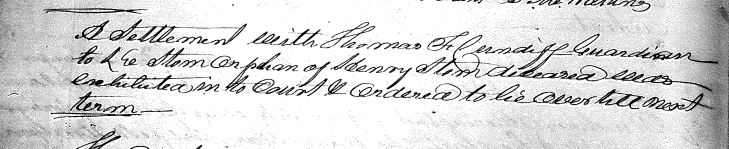 A Settlement with Thomas F Cundiff Guardian
to Lee Stom orphan of Henry Stom deceased was
exhibited in to Court & ordered to lie over till next
term